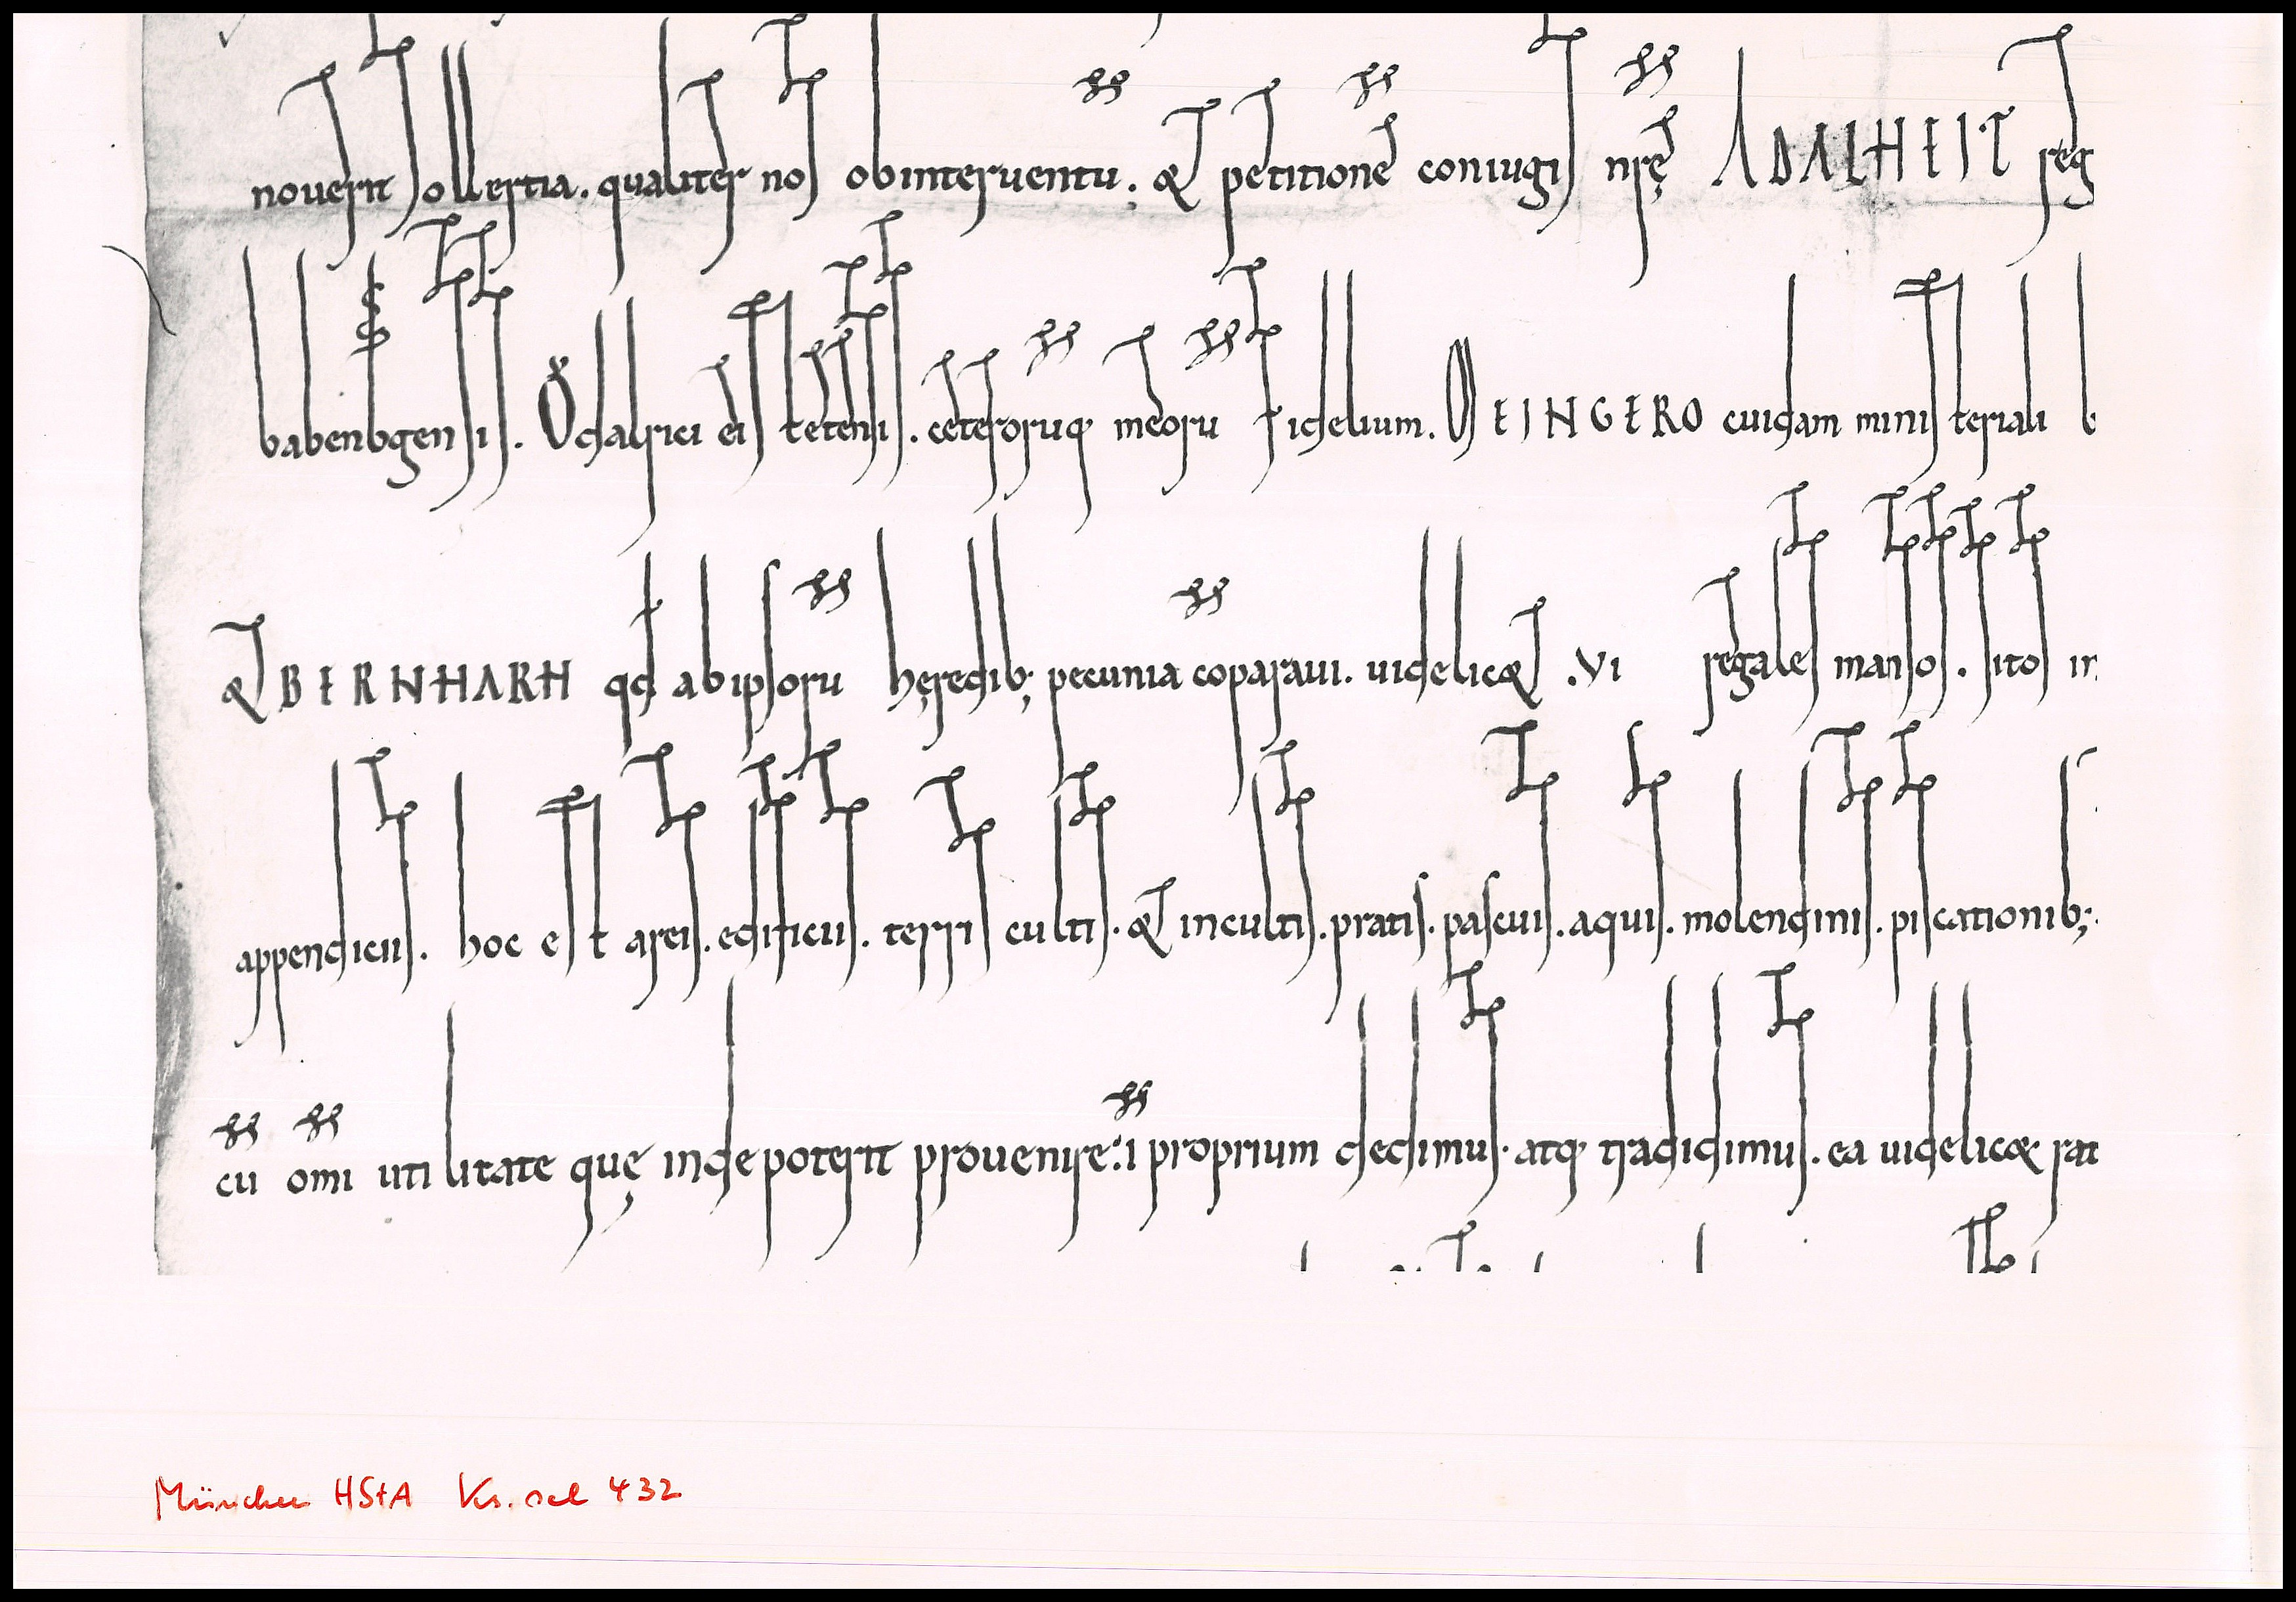 noverit sollertia. qualiter nos ob interuentu; & petitione coniugis nrę ADALHEIT reg
babenbgensis. Ǒdalrici eistetensis. ceteroruq; meoru fidelium. MEINGERO cuidam ministeriali b
& BERNHARH qd ab ipsoru hęredib; pecunia coparaui. uidelic& .VI regales mansos. sitos in
appendiciis. hoc est areis. edificiis. terris cultis. & incultis. pratis. pascuis. aquis. molendinis. piscationib;.
cu omi utilitate quę inde poterit prouenire. i proprium dedimus. atq; tradidimus. ea uidelic& rat
München HStA Ks. sel 432